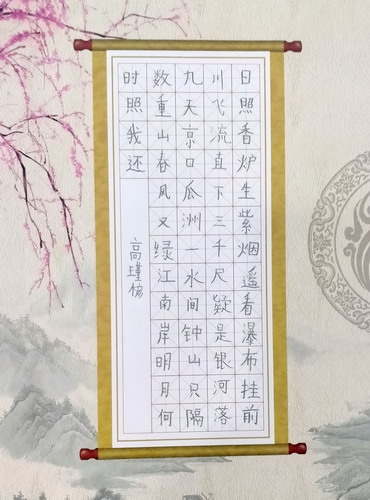 日照香炉生紫烟遥看瀑布挂前
川飞流直下三千尺疑是银河落
九天京口瓜洲一水间钟山只隔
数重山春风又绿江南岸明月何
时照我还
高瑾榕